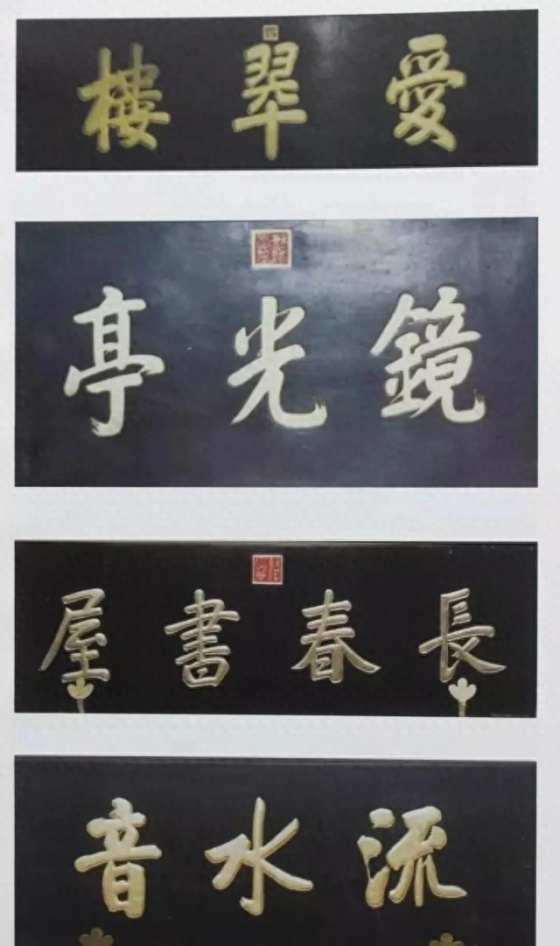 愛翠樓
鏡光亭
長春書屋
流水音